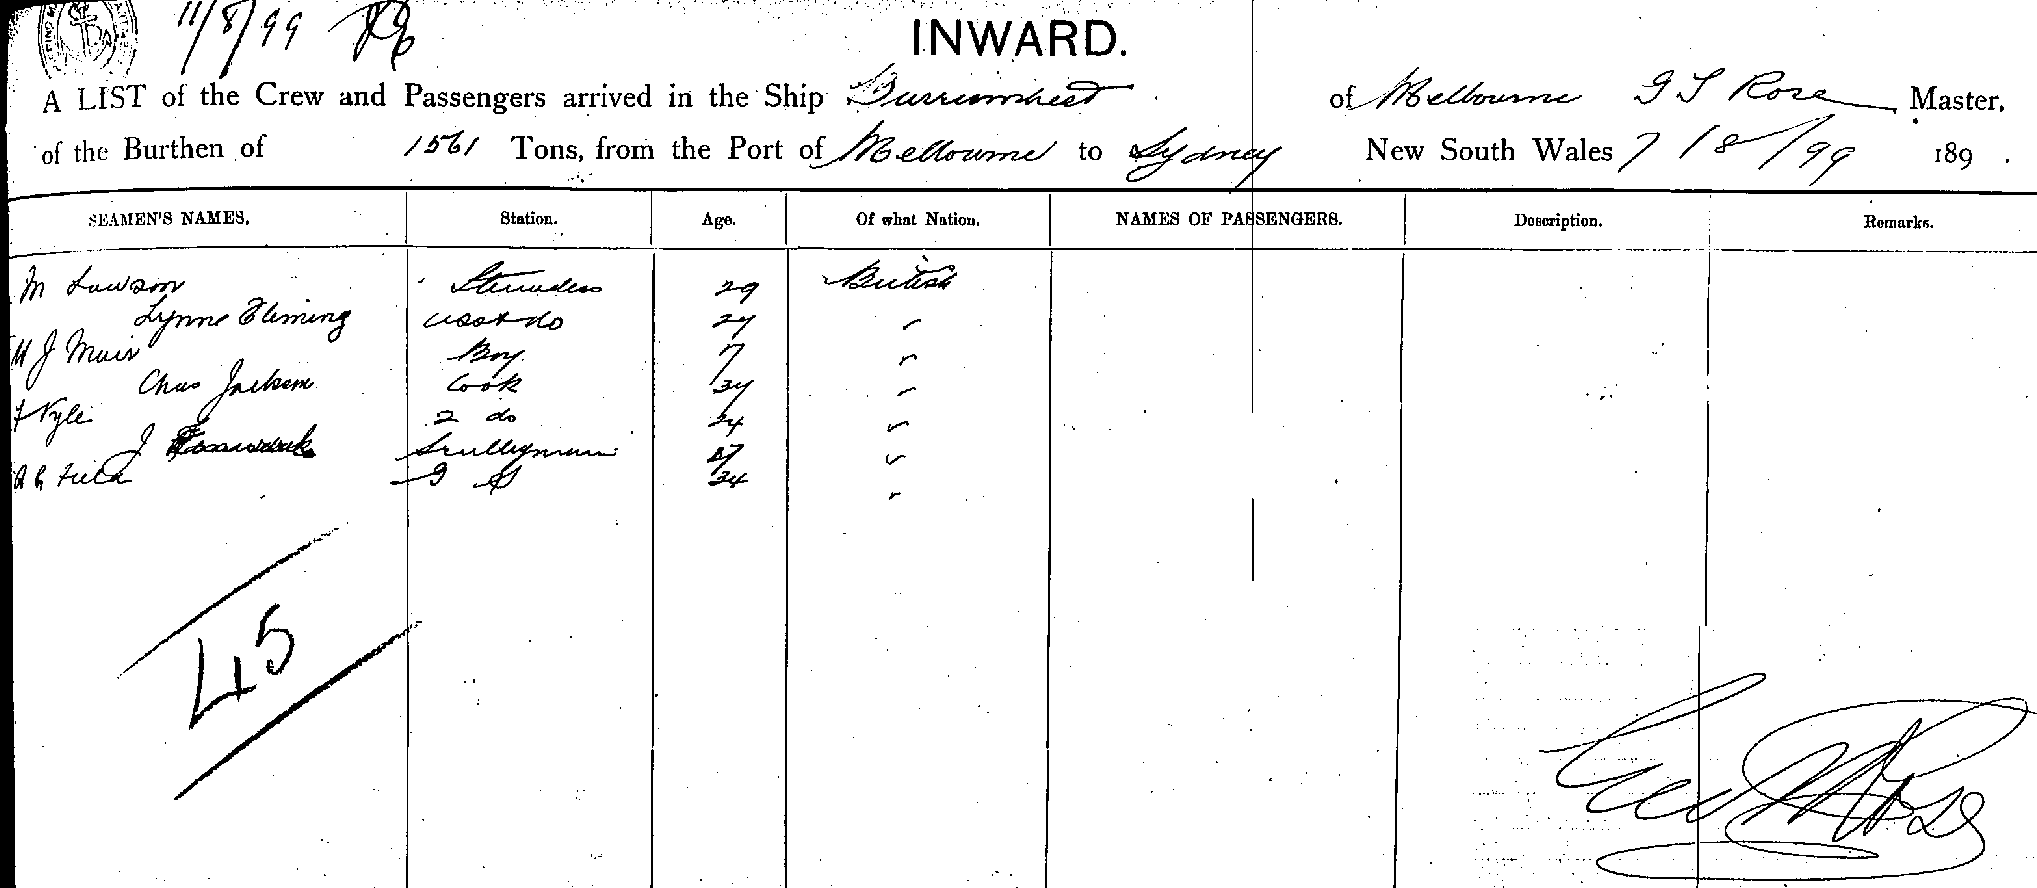 11/8/99
INWARD.
A LIST of the Crew and Passengers arrived in the Ship Burrumbeet of Melbourne Rose Master,
of the Burthen of 1561 Tons, from the Port of Melbourne to Sydney New South Wales 7/8/99 189 .
SEAMEN'S NAMES. Station. Age. Of what Nation. NAMES OF PASSENGERS. Description. Remarks.
M Lawson Stewardess 29 British
Lynne Fleming asst do 24 "
J Muir Boy 17 "
Chas Jackson Cook 34 "
F Kyle 2 do 24 "
J Scullyman 17 "
Field 34 "
45